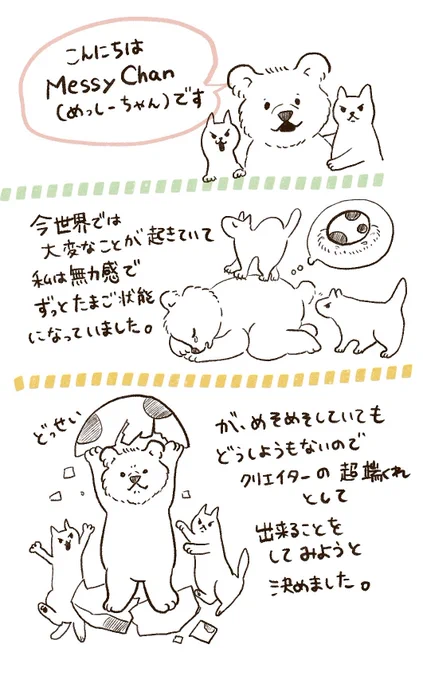 こんにちは
Messy Chan
(めっしーちゃん)です
今世界では
大変なことが起きていて
私は無力感で
ずっとたまご状態
になっていました。
どっせい
が、めそめそしていても
どうしようもないので
クリエイターの超端くれ
として
出来ることを
してみようと
決めました。